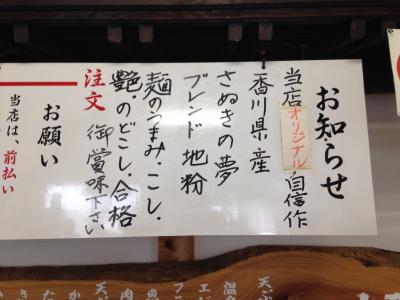 お知らせ
当店オリジナル自信作
香川県産
さぬきの夢
ブレンド地粉
麺のうまみ・こし・
艶・のどごし・合格
注文 御賞味下さい
お願い
当店は、前払い